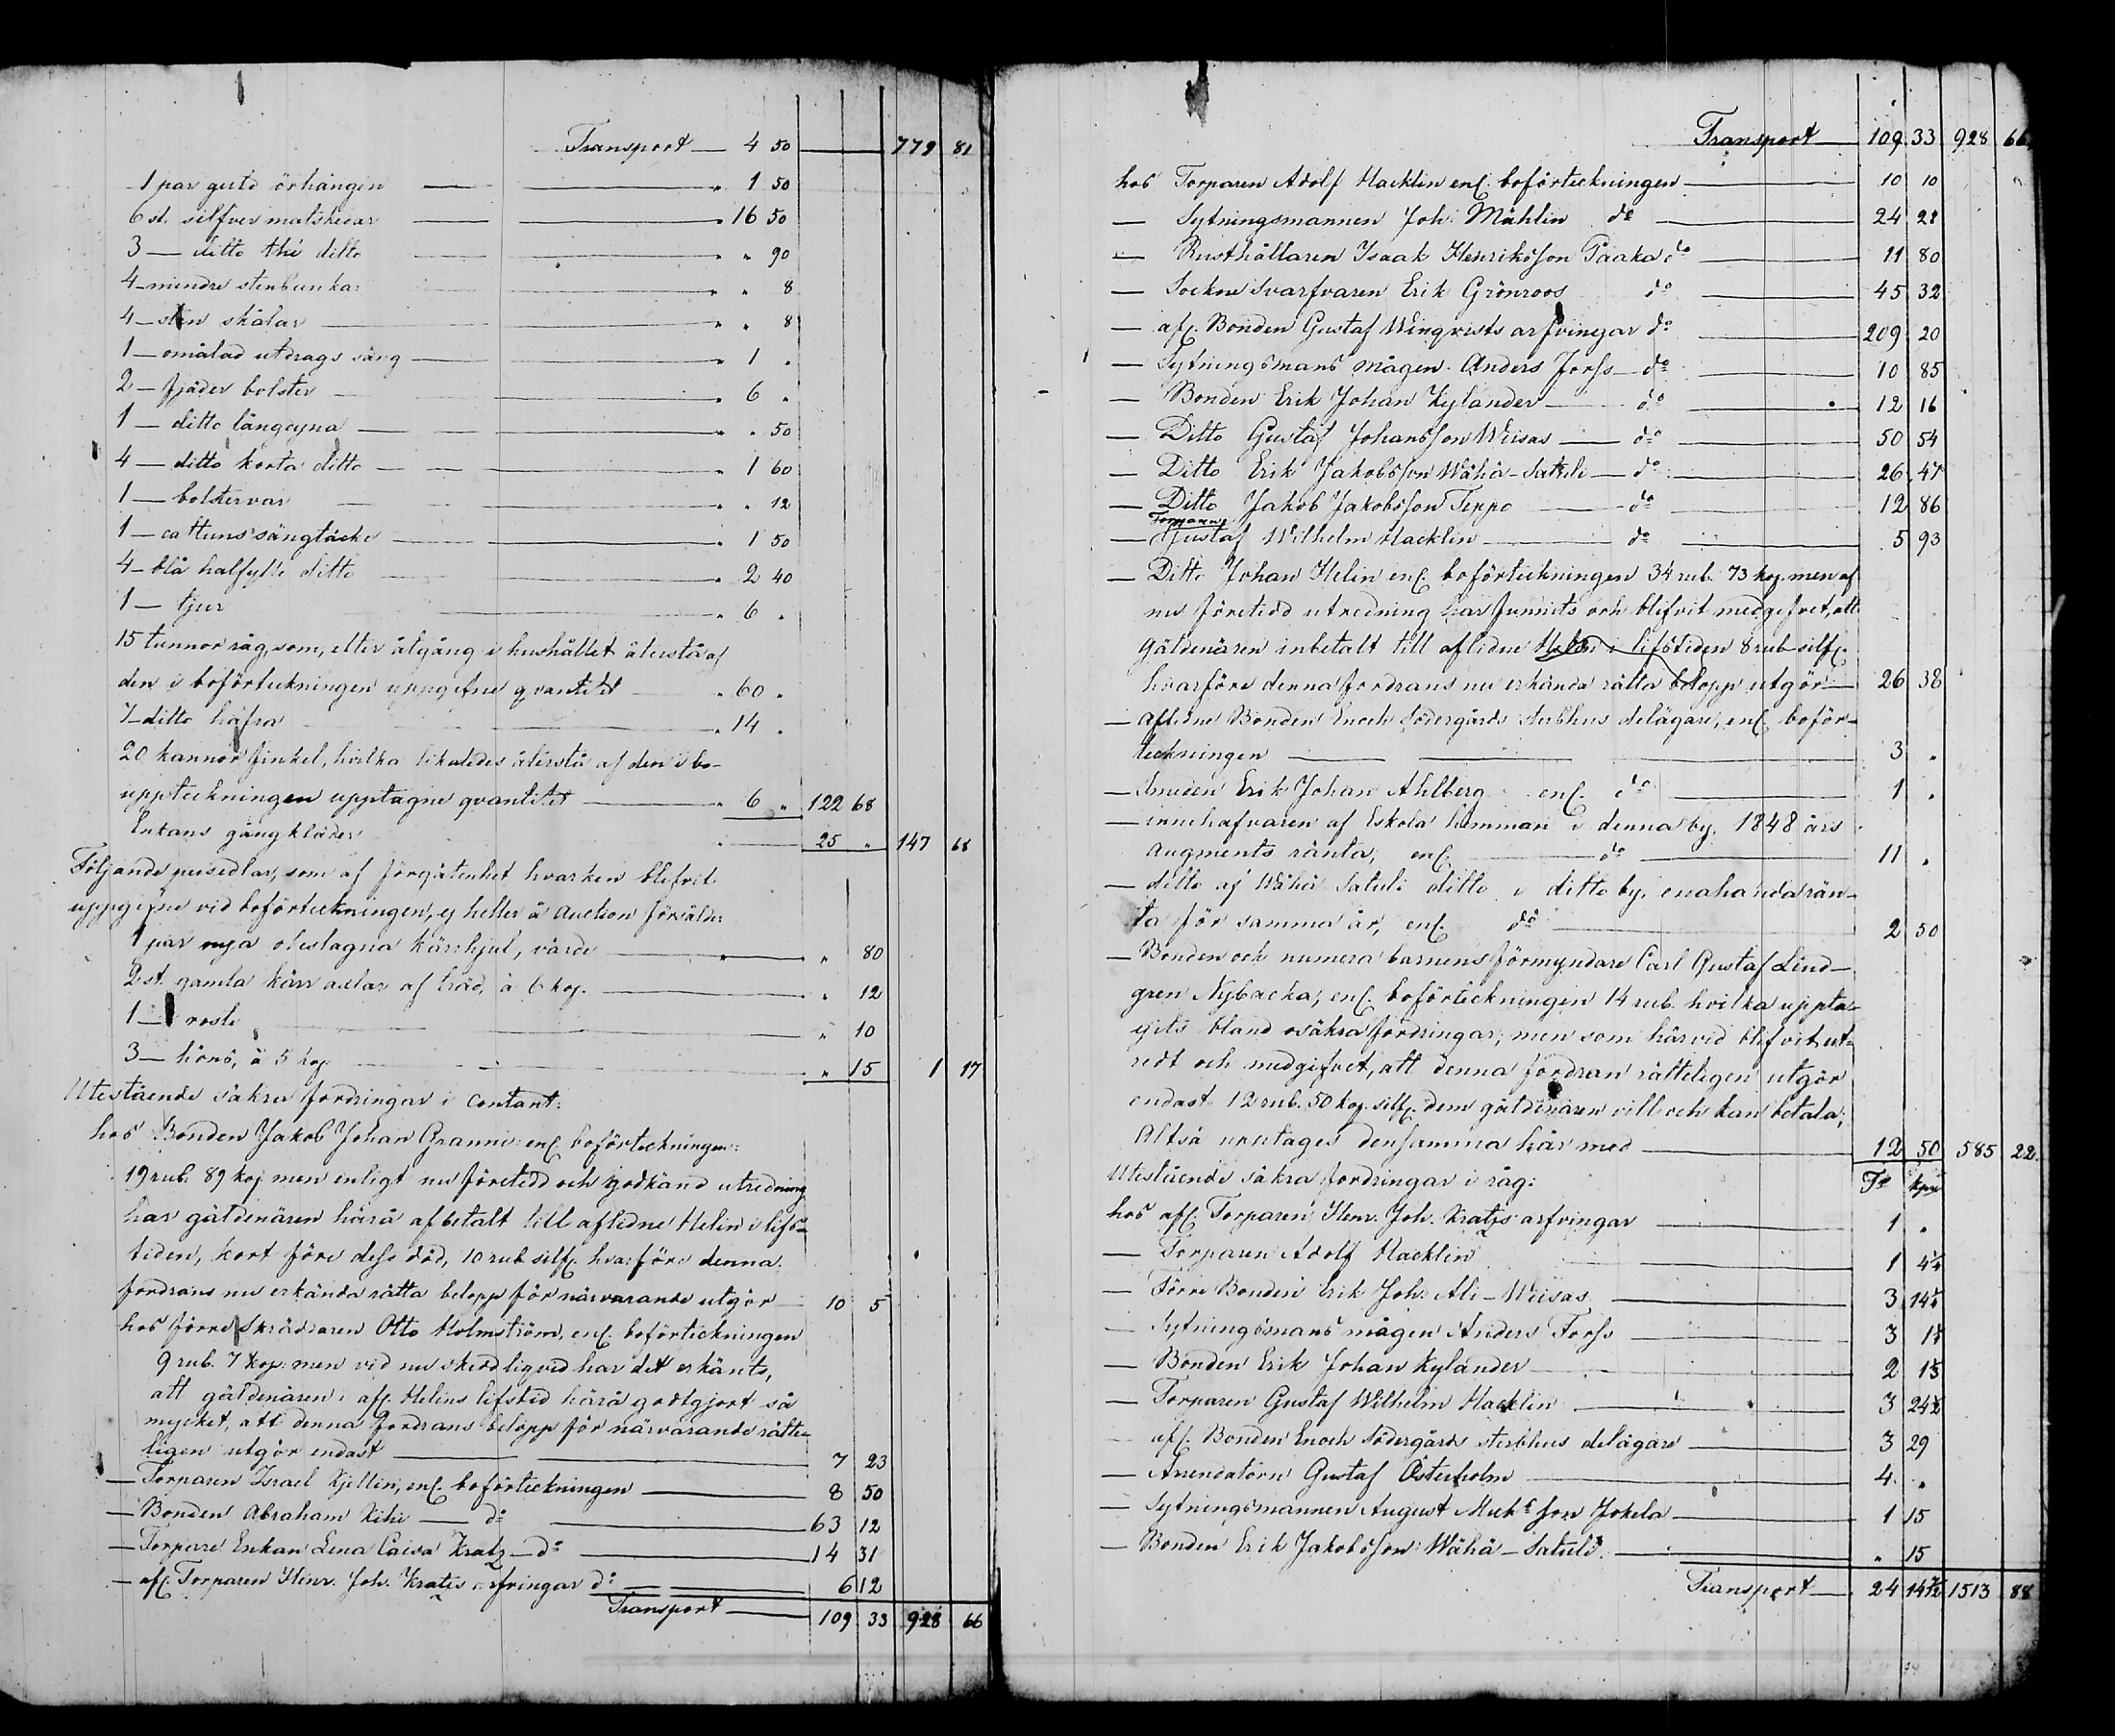 Transport — 4 50 — 779 81
1 par guld örhängen — " 1 50
6 st. silfver matskedar — " 16 50
3 — ditto thé ditto — " " 90
4 — mindre stenbunkar — " " 8
4 — sten skålar — " " 8
1 — omålad utdrags säng — " 1 "
2 — fjäder bolster — " 6 "
1 — ditto långdyna — " " 50
4 — ditto korta ditto — " 1 60
1 — bolstervar — " " 12
1 — cattuns sängtäcke — " 1 50
4 — blå halfylle ditto — " 2 40
1 — tjur — " 6 "
15 tunnor råg, som, efter åtgång i hushållet återstå af
den i boförteckningen uppgifne qvantitet — " 60 "
7 — ditto hafra — " 14 "
20 kannor finkel, hvilka likaledes återstå af den i bo-
uppteckningen upptagne qvantitet — " 6 " 122 68
Enkans gångkläder — 25 " 147 68
Följande persedlar, som af förgätenhet hvarken blifvit
uppgifne vid boförteckningen, ej heller å Auction försålde:
1 par nya oleslagna kärrhjul, värde — " 80
2 st. gamla kärr axlar af träd, à 6 kop. — " 12
1 — roste — " 10
3 — höns, à 5 kop — " 15 1 17
Utestående säkra fordringar i contant:
hos Bonden Jakob Johan Granni: enl. boförteckningen:
19 rub. 89 kop men enligt nu företedd och godkänd utredning
har gäldenären härå afbetalt till aflidne Helin i lifs-
tiden, kort före dess död, 10 rub silfr. hvarföre denna
fordrans nu erkända rätta belopp för närvarande utgör — 10 5
hos förre Skräddaren Otto Holmström, enl. boförteckningen
9 rub. 7 kop: men vid nu skedd liqvid har det erkänts,
att gäldenären i afl. Helins lifstid härå godtgjort så
mycket, att denna fordrans belopp för närvarande rätte-
ligen utgör endast — 7 23
— Torparen Israel Kjellin, enl. boförteckningen — 8 50
— Bonden Abraham Kihi — do — 63 12
— Torpare Enkan Lena Caisa Kratz — do — 14 31
— afl. Torparen Henr. Joh. Kratzs arfvingar do — 6 12
Transport — 109 33 928 66
Transport — 109 33 928 66
hos Torparen Adolf Hacklin enl. boförteckningen — 10 10
— Sytningsmannen Joh: Mählin do — 24 21
— Rusthållaren Isaak Henriksson Paaka do — 11 80
— Sockne Svarfvaren Erik Grönroos do — 45 32
— afl. Bonden Gustaf Winqvists arfvingar do — 209 20
— Sytningsmans mågen Anders Forss — do — 10 85
— Bonden Erik Johan Kylander — do — 12 16
— Ditto Gustaf Johansson Wiisas — do — 50 54
— Ditto Erik Jakobsson Wähä-Satuli — do — 26 47
— Ditto Jakob Jakobsson Teppo — do — 12 86
Torparen
— Gustaf Wilhelm Hacklin — do — 5 93
— Ditto Johan Helin enl. boförteckningen 34 rub. 73 kop. men af
nu företedd utredning har funnits och blifvit medgifvet, att
gäldenären inbetalt till aflidne Helin i lifstiden 8 rub silfr.
hvarföre denna fordrans nu erkända rätta belopp utgör — 26 38
— aflidne Bonden Enoch Södergårds sterbhus delägare, enl. boför-
teckningen — 3 "
— Smeden Erik Johan Ahlberg enl. do — 1 "
— innehafvaren af Eskola hemman i denna by, 1848 års
Augments ränta, enl. — do — 11 "
— ditto af Wähä Satuli ditto i ditto by, enahanda rän-
ta för samma år, enl. do — 2 50
— Bonden och numera barnens förmyndare Carl Gustaf Lind-
gren Nybacka, enl. boförteckningen 14 rub. hvilka uppta-
gits bland osäkra fordringar; men som härvid blifvit ut-
redt och medgifvet, att denna fordran rätteligen utgör
endast 12 rub. 50 kop. silfr. dem gäldenären vill och kan betala;
Altså upptages densamma här med — 12 50 585 22
Utestående säkra fordringar i råg: Tr kpr
hos afl. Torparen Henr. Joh. Kratzs arfvingar — 1 "
— Torparen Adolf Hacklin — 1
— Förre Bonden Erik Joh: Ali-Wiisas — 3
— Sytningsmans mågen Anders Forss — 3
— Bonden Erik Johan Kylander — 2
— Torparen Gustaf Wilhelm Hacklin — 3
afl. Bonden Enoch Södergårds sterbhus delägare — 3 29
— Arrendatorn Gustaf Österholm — 4 "
— Sytningsmannen August Michsson Jokela — 1 15
— Bonden Erik Jakobsson Wähä-Satuli — " 15
Transport — 24 1513 88